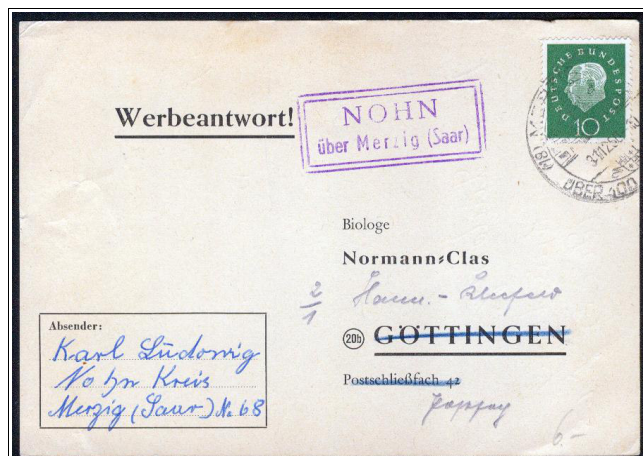 Werbeantwort!
NOHN
über Merzig (Saar)
DEUTSCHE BUNDESPOST
10
ÜBER 400
Biologe
Normann-Clas
2
1
Hann. -
20b GÖTTINGEN
Postschließfach 42
Absender:
Karl Ludowig
Nohn Kreis
Merzig (Saar) No 68
6.-